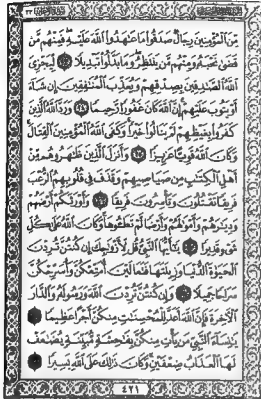 مِّنَ ٱلْمُؤْمِنِينَ رِجَالٌ صَدَقُوا۟ مَا عَٰهَدُوا۟ ٱللَّهَ عَلَيْهِ ۖ فَمِنْهُم مَّن
قَضَىٰ نَحْبَهُۥ وَمِنْهُم مَّن يَنتَظِرُ ۖ وَمَا بَدَّلُوا۟ تَبْدِيلًا ٢٣ لِّيَجْزِىَ
ٱللَّهُ ٱلصَّٰدِقِينَ بِصِدْقِهِمْ وَيُعَذِّبَ ٱلْمُنَٰفِقِينَ إِن شَآءَ
أَوْ يَتُوبَ عَلَيْهِمْ ۚ إِنَّ ٱللَّهَ كَانَ غَفُورًا رَّحِيمًا ٢٤ وَرَدَّ ٱللَّهُ ٱلَّذِينَ
كَفَرُوا۟ بِغَيْظِهِمْ لَمْ يَنَالُوا۟ خَيْرًا ۚ وَكَفَى ٱللَّهُ ٱلْمُؤْمِنِينَ ٱلْقِتَالَ ۚ
وَكَانَ ٱللَّهُ قَوِيًّا عَزِيزًا ٢٥ وَأَنزَلَ ٱلَّذِينَ ظَٰهَرُوهُم مِّنْ
أَهْلِ ٱلْكِتَٰبِ مِن صَيَاصِيهِمْ وَقَذَفَ فِى قُلُوبِهِمُ ٱلرُّعْبَ
فَرِيقًا تَقْتُلُونَ وَتَأْسِرُونَ فَرِيقًا ٢٦ وَأَوْرَثَكُمْ أَرْضَهُمْ
وَدِيَٰرَهُمْ وَأَمْوَٰلَهُمْ وَأَرْضًا لَّمْ تَطَـُٔوهَا ۚ وَكَانَ ٱللَّهُ عَلَىٰ كُلِّ
شَىْءٍ قَدِيرًا ٢٧ يَٰٓأَيُّهَا ٱلنَّبِىُّ قُل لِّأَزْوَٰجِكَ إِن كُنتُنَّ تُرِدْنَ
ٱلْحَيَوٰةَ ٱلدُّنْيَا وَزِينَتَهَا فَتَعَالَيْنَ أُمَتِّعْكُنَّ وَأُسَرِّحْكُنَّ
سَرَاحًا جَمِيلًا ٢٨ وَإِن كُنتُنَّ تُرِدْنَ ٱللَّهَ وَرَسُولَهُۥ وَٱلدَّارَ
ٱلْـَٔاخِرَةَ فَإِنَّ ٱللَّهَ أَعَدَّ لِلْمُحْسِنَٰتِ مِنكُنَّ أَجْرًا عَظِيمًا
يَٰنِسَآءَ ٱلنَّبِىِّ مَن يَأْتِ مِنكُنَّ بِفَٰحِشَةٍ مُّبَيِّنَةٍ يُضَٰعَفْ
لَهَا ٱلْعَذَابُ ضِعْفَيْنِ ۚ وَكَانَ ذَٰلِكَ عَلَى ٱللَّهِ يَسِيرًا
٤٢١